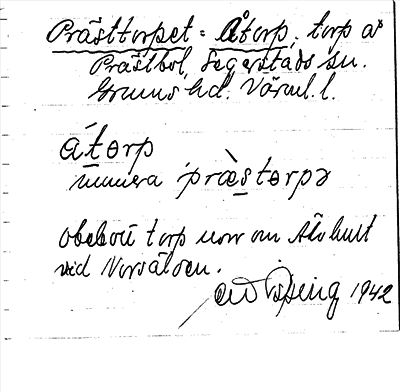 Prästtorpet = Åtorp, torp a˟
Prästbol, Segerstads sn.
Grums hd. Värml. l.
átorp
numera præ̀storpə
obebott torp norr om Älvhult
vid Norsälven.
1942